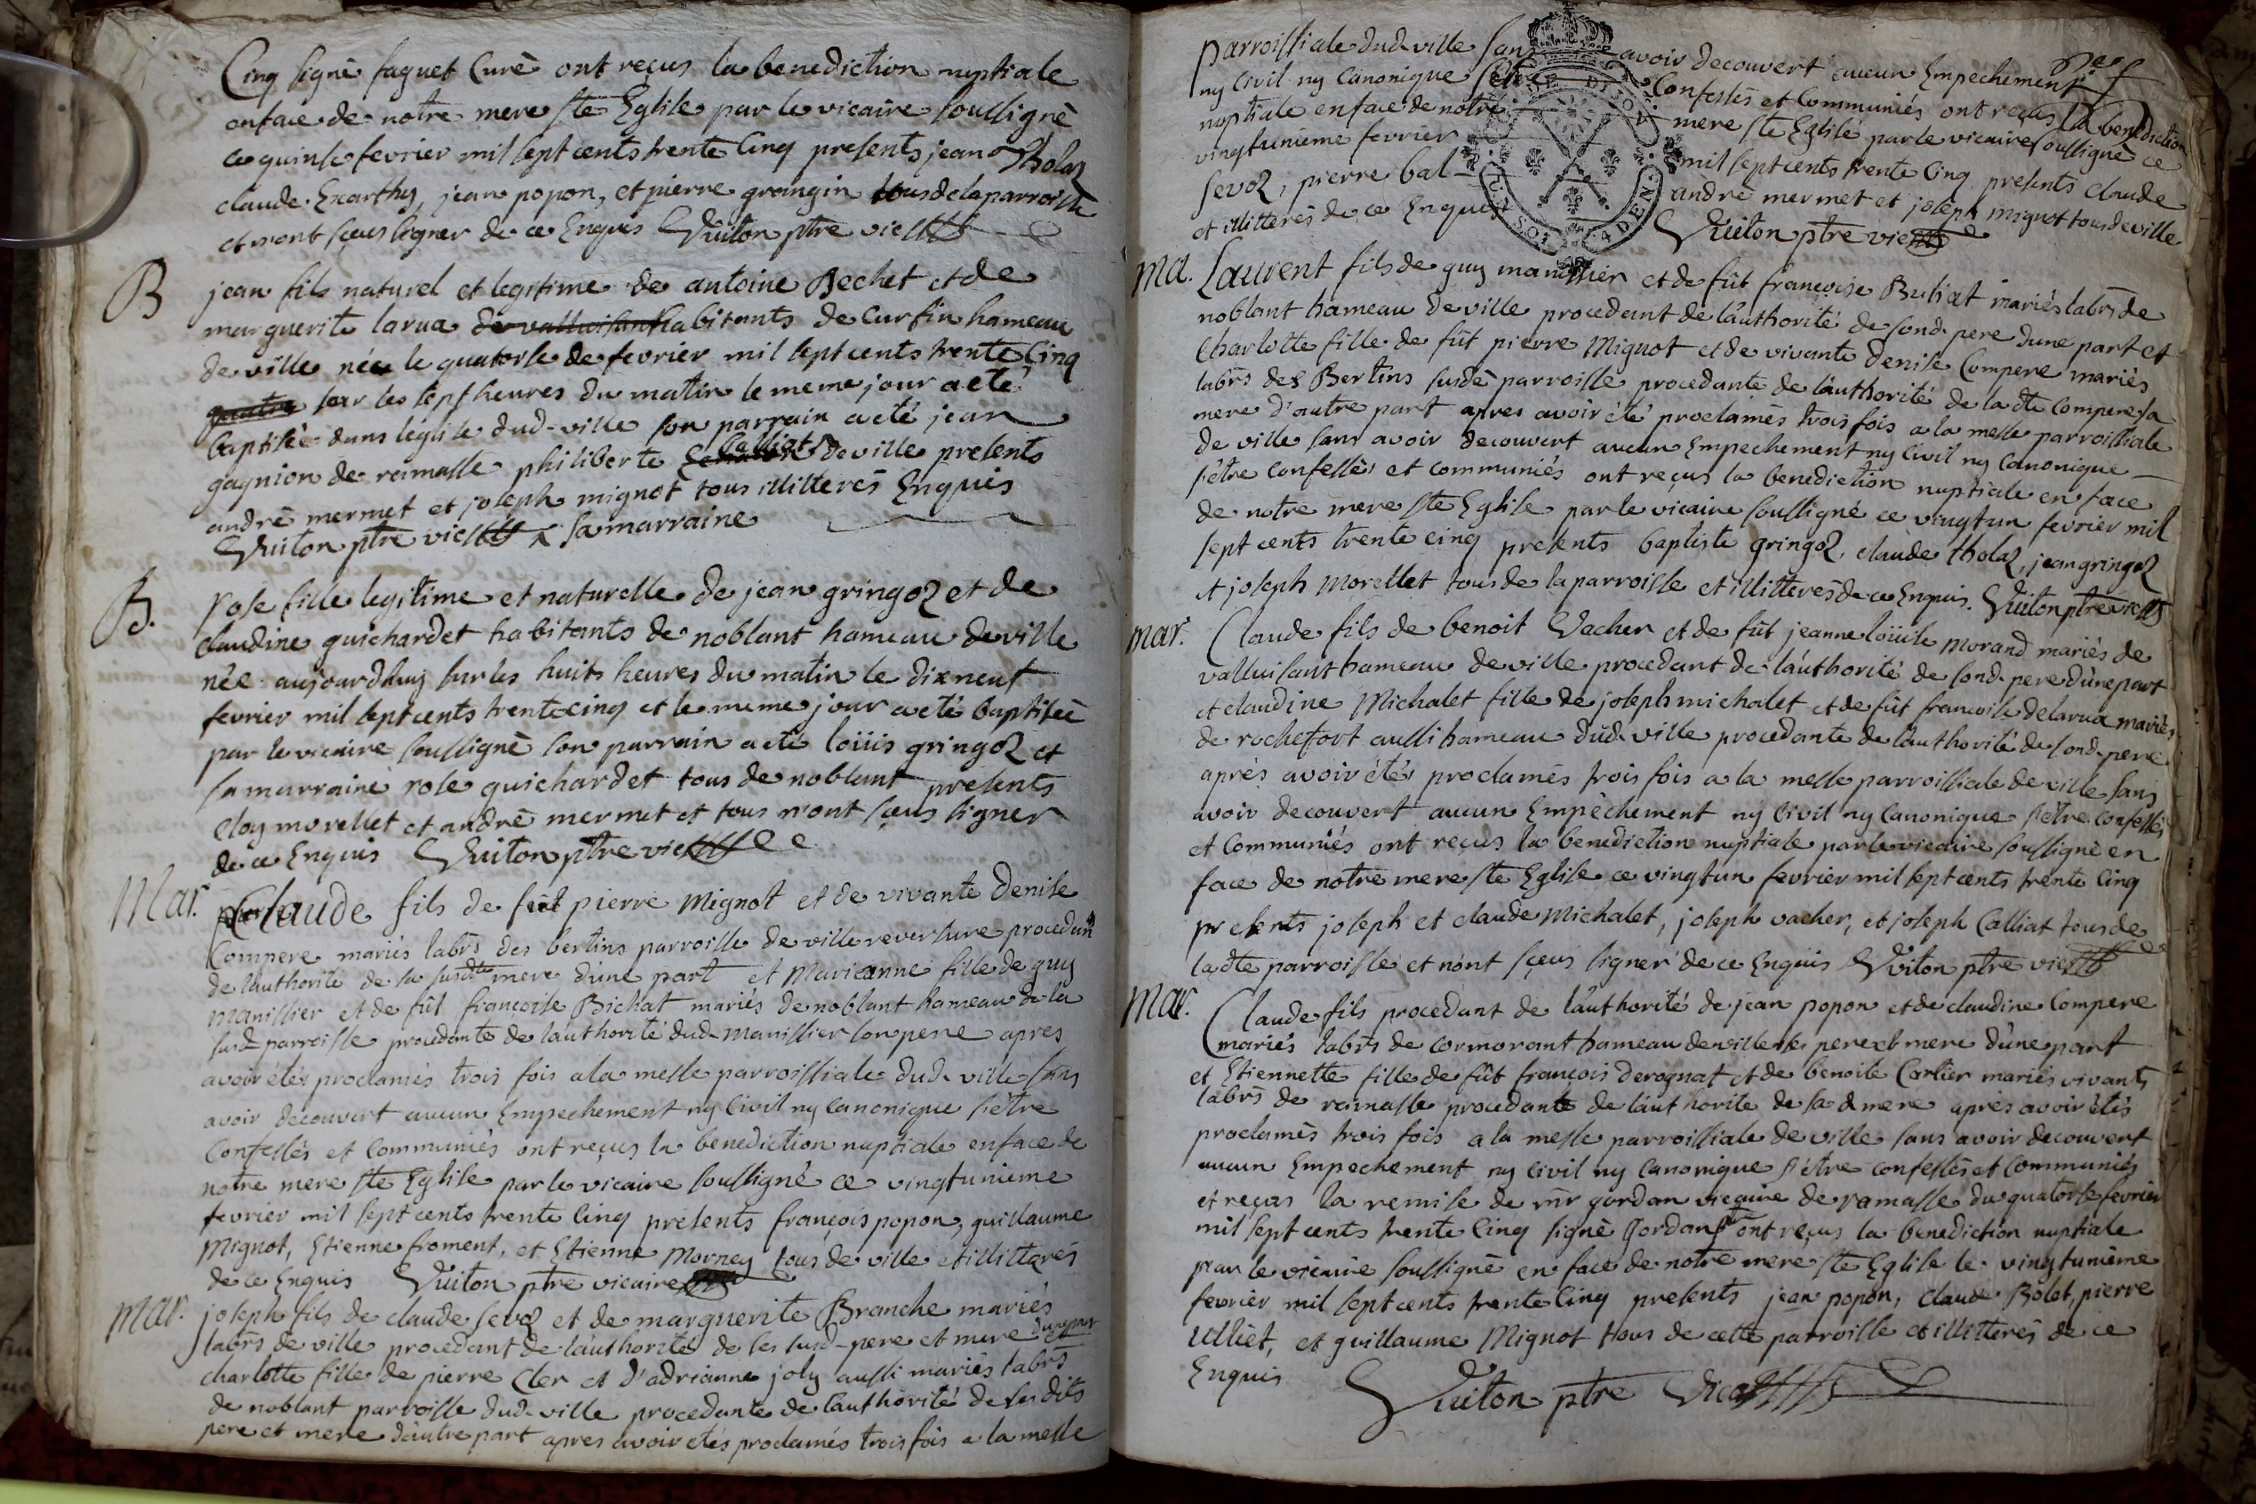 Cinq signé faguet Curé ont reçus la benediction nuptiale
enface de notre mere Ste Eglise par le vicaire soussigné
ce quinse fevrier mil sept cents trente Cinq presents jean Tholaz
claude Excarthy, jean popon, et pierre grangin tous de la parroisse
et n'ont sçeus signer de ce Enquis Vuiton ptre vic
B
jean fils naturel et legitime de antoine Bechet et de
marguerite larua de valluisant habitants de Curfin hameau
de ville née le quatorse de fevrier mil sept cents trente Cinq
quatre sur les sept heures du matin le meme jour a eté
baptisée dans léglise dud ville son parrain a eté jean
gagnion de ramasse philiberte Calliat de ville presents
andré mermet et joseph mignot tous illitterés Enquis
Vuiton ptre vic sa marraine
B.
rose fille legitime et naturelle de jean gringoz et de
claudine guichardet habitants de noblant hameau de ville
née aujourdhuy sur les huits heures du matin le dixneuf
fevrier mil sept cents trente cinq et le meme jour a eté baptisée
par le vicaire soussigné son parrain a eté loüis gringoz et
sa marraine rose guichardet tous de noblant presents
eloy morellet et andré mermet et tous n'ont sçeus signer
de ce Enquis Vuiton ptre vic
Mar.
Claude fils de fût pierre Mignot et de vivante Denise
Compere mariés labrs des bertins parroisse de ville reversure procedant
de lauthorité de sa susdte mere d'une part et Marianne fille de guy
Manissier et de fût françoise Bichat mariés de noblant hameau de la
susd parroisse procedante de lauthorité dud Manissier son pere apres
avoir étés proclamés trois fois a la messe parroissiale dud ville sans
avoir decouvert aucun Empechement ny Civil ny Canonique s'etre
Confessés et Communiés ont reçus la benediction nuptiale enface de
notre mere Ste Eglise par le vicaire soussigné ce vingtunieme
fevrier mil sept cents trente Cinq presents françois popon, guillaume
Mignot, Etienne froment, et Etienne Morney tous de ville et illitterés
de ce Enquis Vuiton ptre vicaire
Mar.
joseph fils de claude Sevoz et de marguerite Branche mariés
labrs de ville procedant de l'authorité de ses susd pere et mere d'une part
charlotte fille de pierre Cler et d'adrianne joly aussi mariés labrs
de noblant parroisse dud ville procedante de l'authorité de ses dits
pere et mere d'autre part apres avoir etés proclamés trois fois a la messe
parroissiale dud ville sans avoir decouvert aucun Empechement
ny Civil ny Canonique s'etre Confessés et Communiés ont reçus la benediction
nuptiale enface de notre mere Ste Eglise par le vicaire soussigné ce
vingtunieme fevrier mil sept cents trente Cinq presents claude
sevoz, pierre bal andré mermet et joseph mignot tous de ville
et illitterés de ce Enquis Vuiton ptre vic
DE DIJON
Ma.
Laurent fils de guy manissier et de fût françoise Buhat mariés labrs de
noblant hameau de ville procedant de l'authorité de sond pere dune part et
Charlotte fille de fût pierre Mignot et de vivante denise Compere mariés
labrs des Bertins susde parroisse procedante de l'authorité de la dte Compere sa
mere d'autre part apres avoir été proclamés trois fois a la messe parroissiale
de ville sans avoir decouvert aucun Empechement ny Civil ny Canonique
s'être Confessés et communiés ont reçus la benediction nuptiale en face
de notre mere Ste Eglise par le vicaire soussigné ce vingtun fevrier mil
sept cents trente cinq presents baptiste gringoz, claude tholaz, jean gringoz
et joseph Morellet tous de la parroisse et illitterés de ce Enquis. Vuiton ptre vic
mar.
Claude fils de benoit Vacher et de fût jeanne loüise Morand mariés de
valluisant hameau de ville procedant de l'authorité de sond pere d'une part
et claudine Michalet fille de joseph michalet et de fût françoise delarua mariés
de rochefort aussi hameau dûd ville procedante de l'authorité de sond pere
après avoir étés proclamés trois fois a la messe parroissiale de ville sans
avoir decouvert aucun Empêchement ny Civil ny Canonique s'etre Confessés
et Communiés ont reçus la benediction nuptiale par le vicaire soussigné en
face de notre mere Ste Eglise ce vingtun fevrier mil sept cents trente Cinq
presents joseph et claude Michalet, joseph vacher, et joseph Calliat tous de
ladte parroisse et n'ont sçeus signer de ce Enquis Vuiton ptre vic
Mar.
Claude fils procedant de l'authorité de jean popon et de claudine Compere
mariés labrs de cormorant hameau de ville ses pere et mere d'une part
et Etiennette fille de fût françois derognat et de benoite Cartier mariés vivants
labrs de ramasse procedante de l'authorité de sa d mere après avoir étés
proclamés trois fois a la messe parroissiale de ville sans avoir decouvert
aucun Empechement ny Civil ny Canonique s'être Confessés et Communiés
et reçus la remise de mr gordan vicaire de ramasse du quatorse fevrier
mil sept cents trente Cinq signé Gordan ont reçus la benediction nuptiale
par le vicaire soussigné en face de notre mere Ste Eglise le vingtunième
fevrier mil sept cents trente Cinq presents jean popon, claude Bolot, pierre
ulliet, et guillaume Mignot tous de cette parroisse et illitterés de ce
Enquis Vuiton ptre Vic